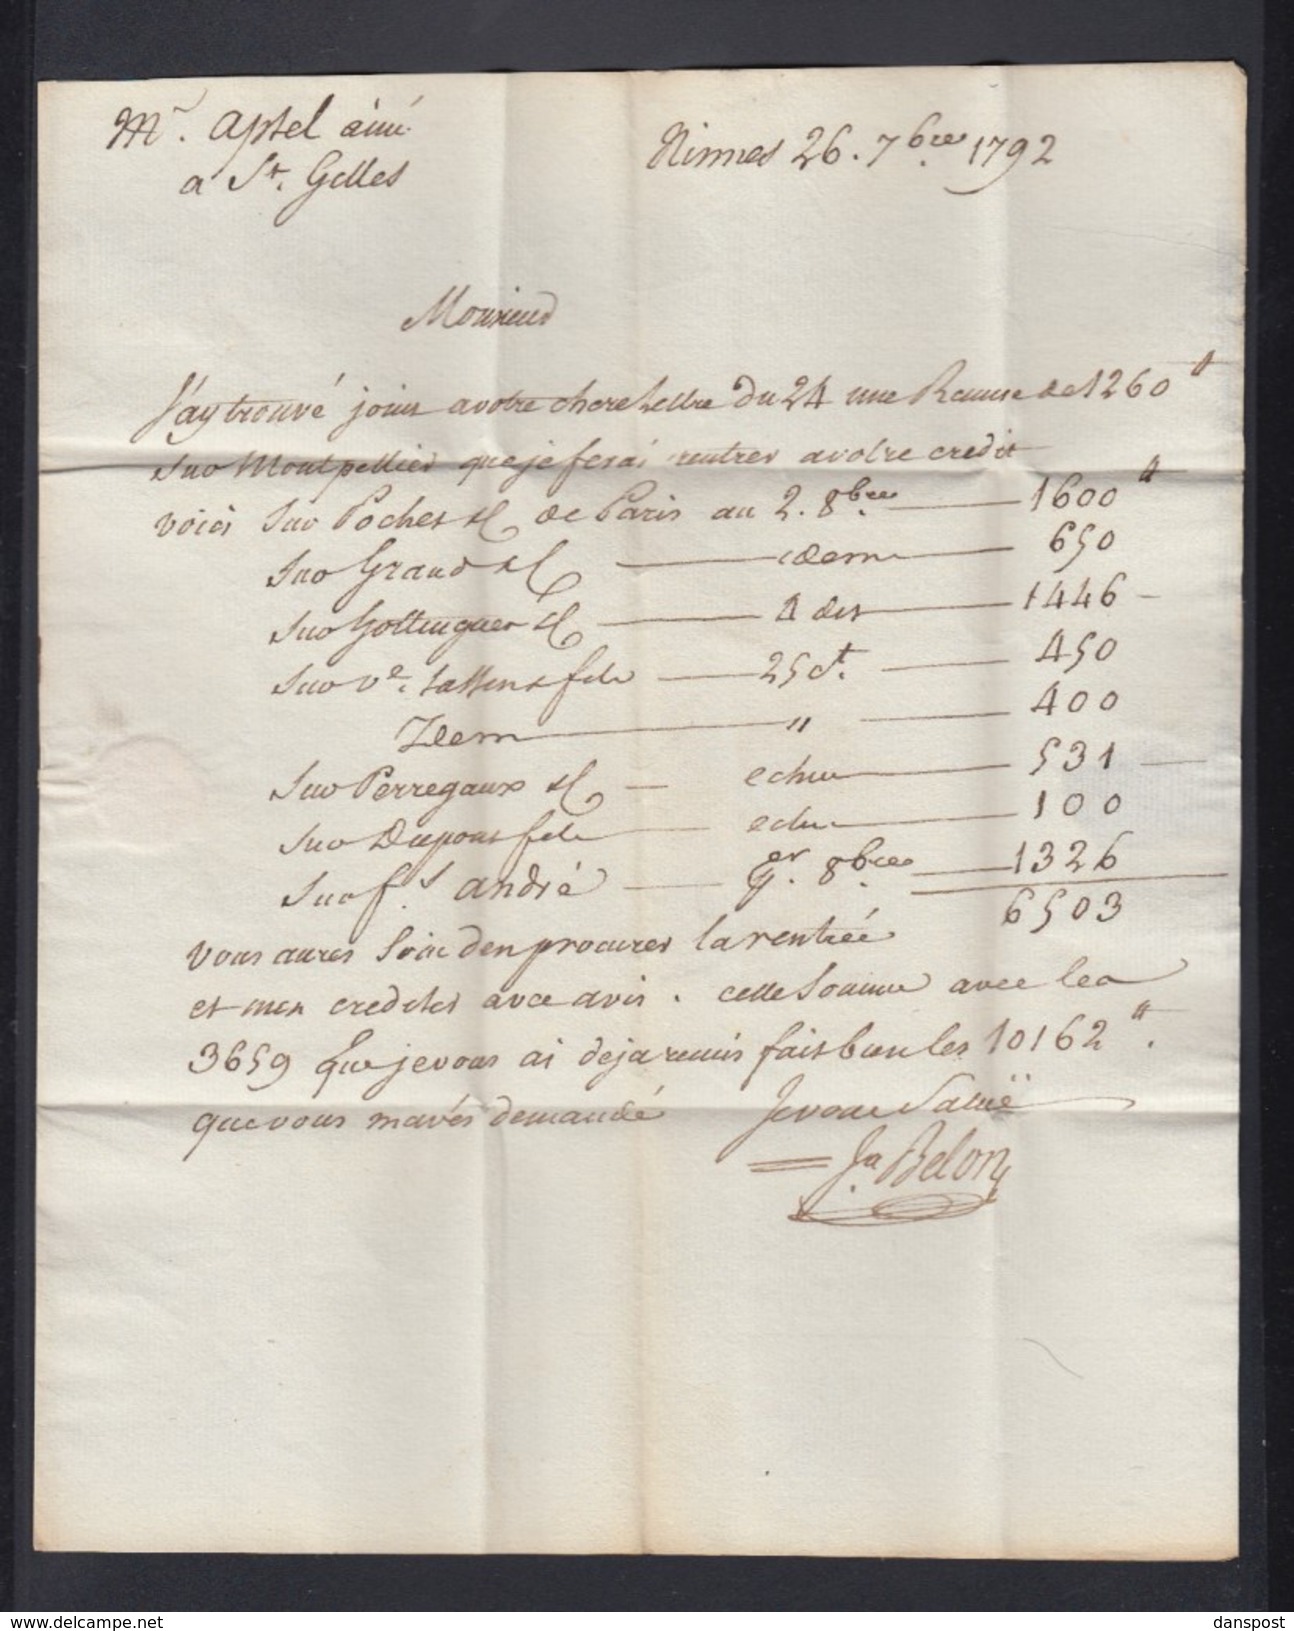 Mr. Aptel ainé
a St. Gilles
Nismes 26. 7bre. 1792
Monsieur
J'ay trouvé joint a votre chere Lettre du 24 une Remise de 1260 ₶
sur Montpellier que je ferai rentrer a votre credit
voici sur Poches & C de Paris au 2. 8bre. 1600 ₶
sur Grand & C idem 650
sur Hottinguer & C 4 dit 1446
sur Ve. & fils 25 Ct. 450
Idem " 400
sur Perregaux & C echu 531
sur Dupont fils echu 100
sur fs. andré 8bre. 1326
6503
Vous aures Soin den procurer la rentrée
et men crediter avec avis. cette Somme avec les
3659 que je vous ai deja remis fait bien les 10162 ₶.
que vous mavés demandé Je vous Saluë
Ja Belon
www.delcampe.net
danspost